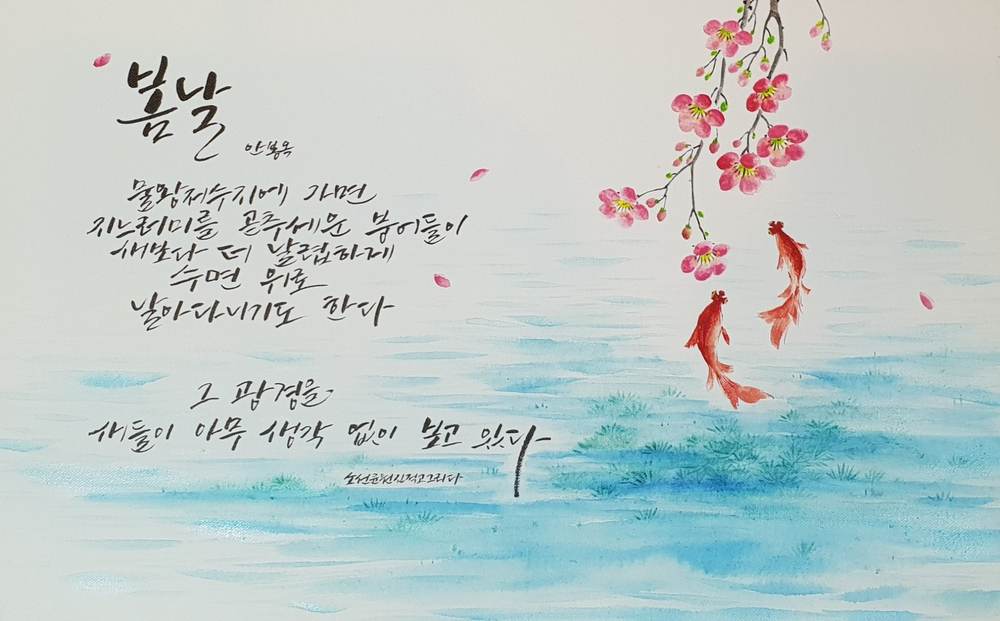 봄날
안봉옥
물왕저수지에 가면
지느러미를 곧추세운 붕어들이
새보다 더 날렵하게
수면 위로
날아다니기도 한다
그 광경을
새들이 아무 생각 없이 보고 있다